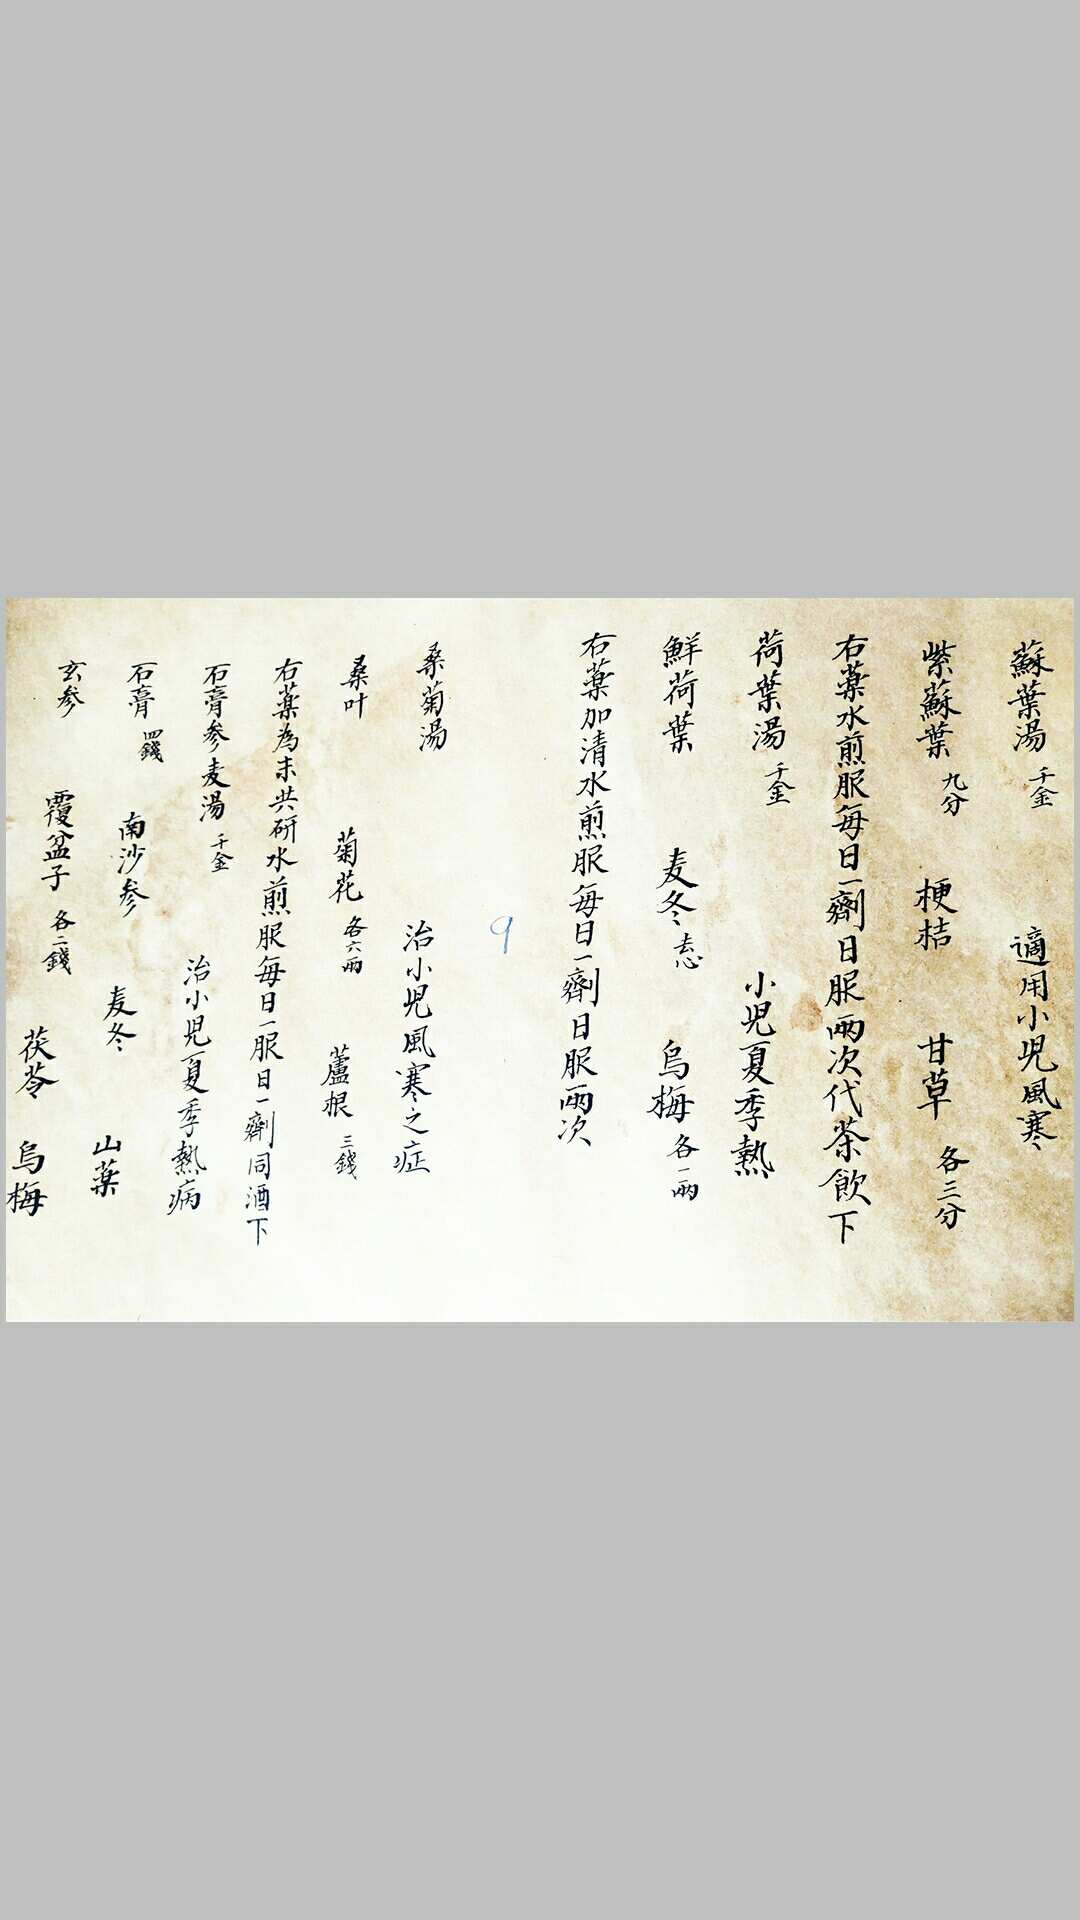 蘇葉湯 千金 適用小児風寒
紫蘇葉 九分 梗桔 甘草 各三分
右藥水煎服每日一劑日服兩次代茶飲下
荷葉湯 千金 小児夏季熱
鮮荷葉 麦冬 去心 烏梅 各一兩
右藥加清水煎服每日一劑日服兩次
9
桑菊湯 治小児風寒之症
桑叶 菊花 各六兩 蘆根 三錢
右藥為末共研水煎服每日一服日一劑同酒下
石膏參麦湯 千金 治小児夏季熱病
石膏 四錢 南沙參 麦冬 山藥
玄參 覆盆子 各二錢 茯苓 烏梅